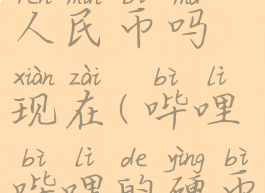 rén mín bì ma
人民币吗
xiàn zài bì lì
现在(哔哩
bì lì de yìng bì
哔哩的硬币